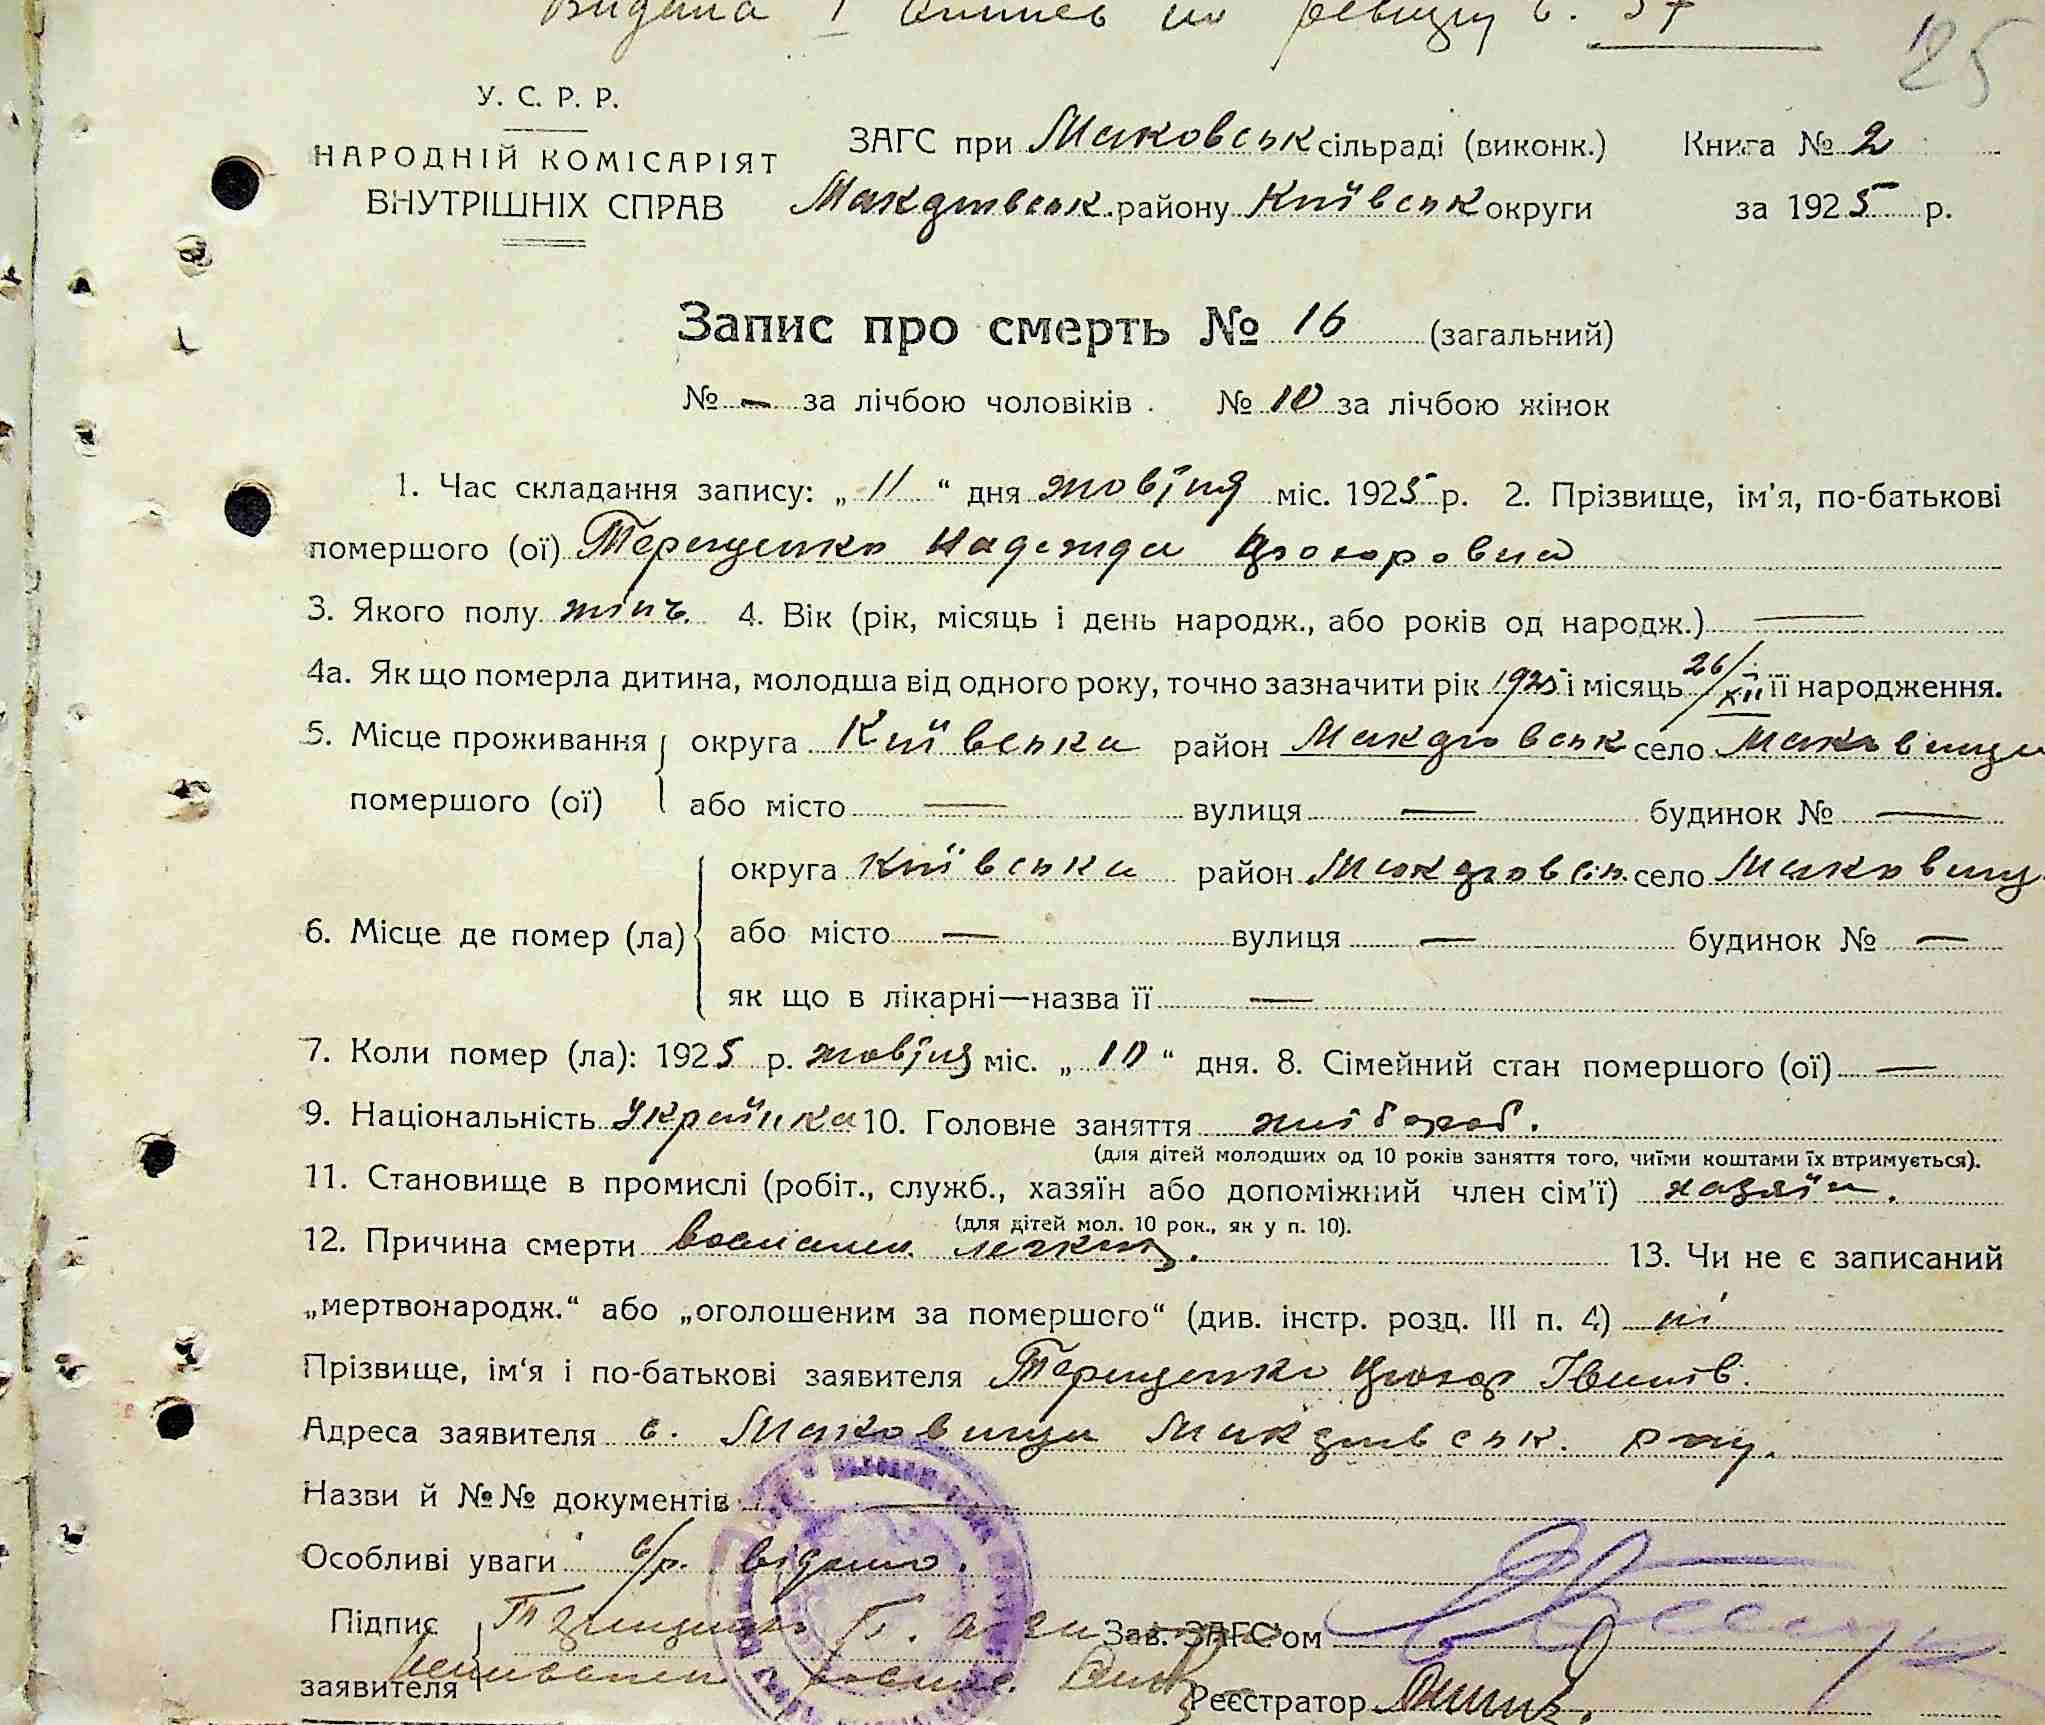 Видана 1
25
У. С. Р. Р.
НАРОДНІЙ КОМІСАРІЯТ
ВНУТРІШНІХ СПРАВ
ЗАГС при Маковськ сільраді (виконк.) Книга № 2
Макарівськ. району Київськ округи за 1925 р.
Запис про смерть № 16 (загальний)
№ — за лічбою чоловіків. № 10 за лічбою жінок
1. Час складання запису: „ 11 “ дня жовтня міс. 1925 р. 2. Прізвище, ім'я, по-батькові
помершого (ої) Терещенко Надежда
3. Якого полу жіноч. 4. Вік (рік, місяць і день народж., або років од народж.) —
4а. Як що померла дитина, молодша від одного року, точно зазначити рік 1925 і місяць 26/XII її народження.
5. Місце проживання округа Київська район Макарівськ село Маковищи
помершого (ої) або місто — вулиця — будинок № —
округа Київська район Макаровськ село Маковищ
6. Місце де помер (ла) або місто — вулиця — будинок № —
як що в лікарні—назва її —
7. Коли помер (ла): 1925 р. жовтня міс. „ 10 “ дня. 8. Сімейний стан помершого (ої) —
9. Національність Українка 10. Головне заняття хлібороб.
(для дітей молодших од 10 років заняття того, чиїми коштами їх втримується).
11. Становище в промислі (робіт., служб., хазяїн або допоміжний член сім'ї) хазяїн.
(для дітей мол. 10 рок., як у п. 10).
12. Причина смерти воспален. легких. 13. Чи не є записаний
„мертвонародж.“ або „оголошеним за помершого“ (див. інстр. розд. III п. 4) ні
Прізвище, ім'я і по-батькові заявителя Терещенко Іванов.
Адреса заявителя с. Маковищи Макарівськ. р-ну.
Назви й №№ документів —
Особливі уваги відомо.
Підпис
заявителя
Зав. ЗАГС'ом
Реєстратор